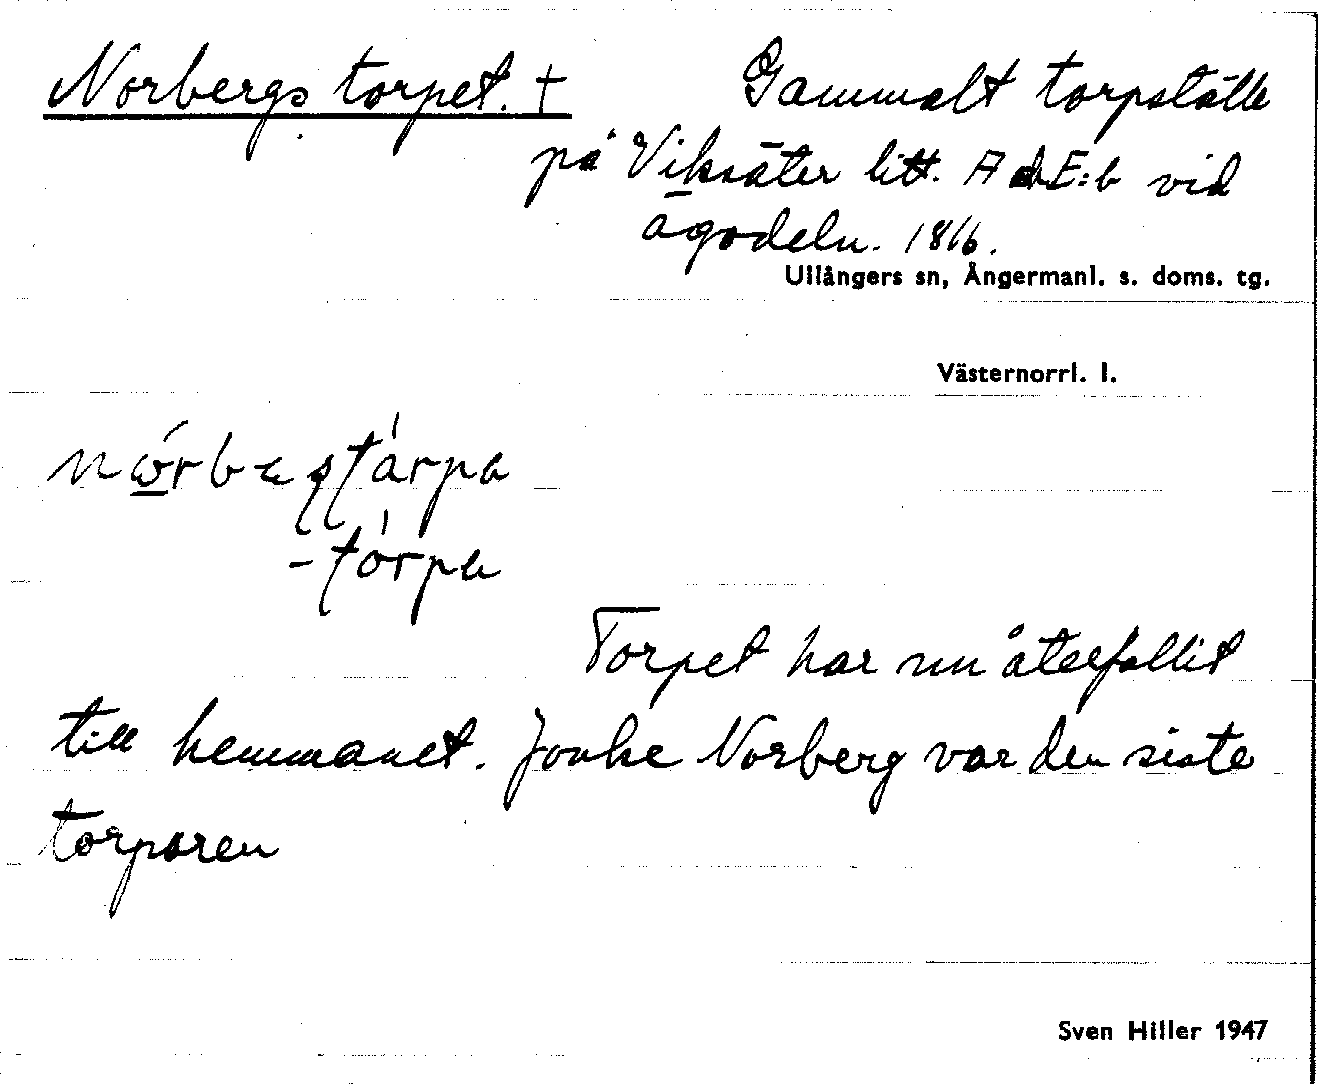 Norbergs torpet. † Gammalt torpställe
på Viksäter litt. A och E:b vid
ägodeln. 1866.
Ullångers sn, Ångermanl. s. doms. tg.
Västernorrl. l.
-tórpa
Torpet har nu återfallit
till hemmanet. Jonke Norberg var den siste
torparen
Sven Hiller 1947